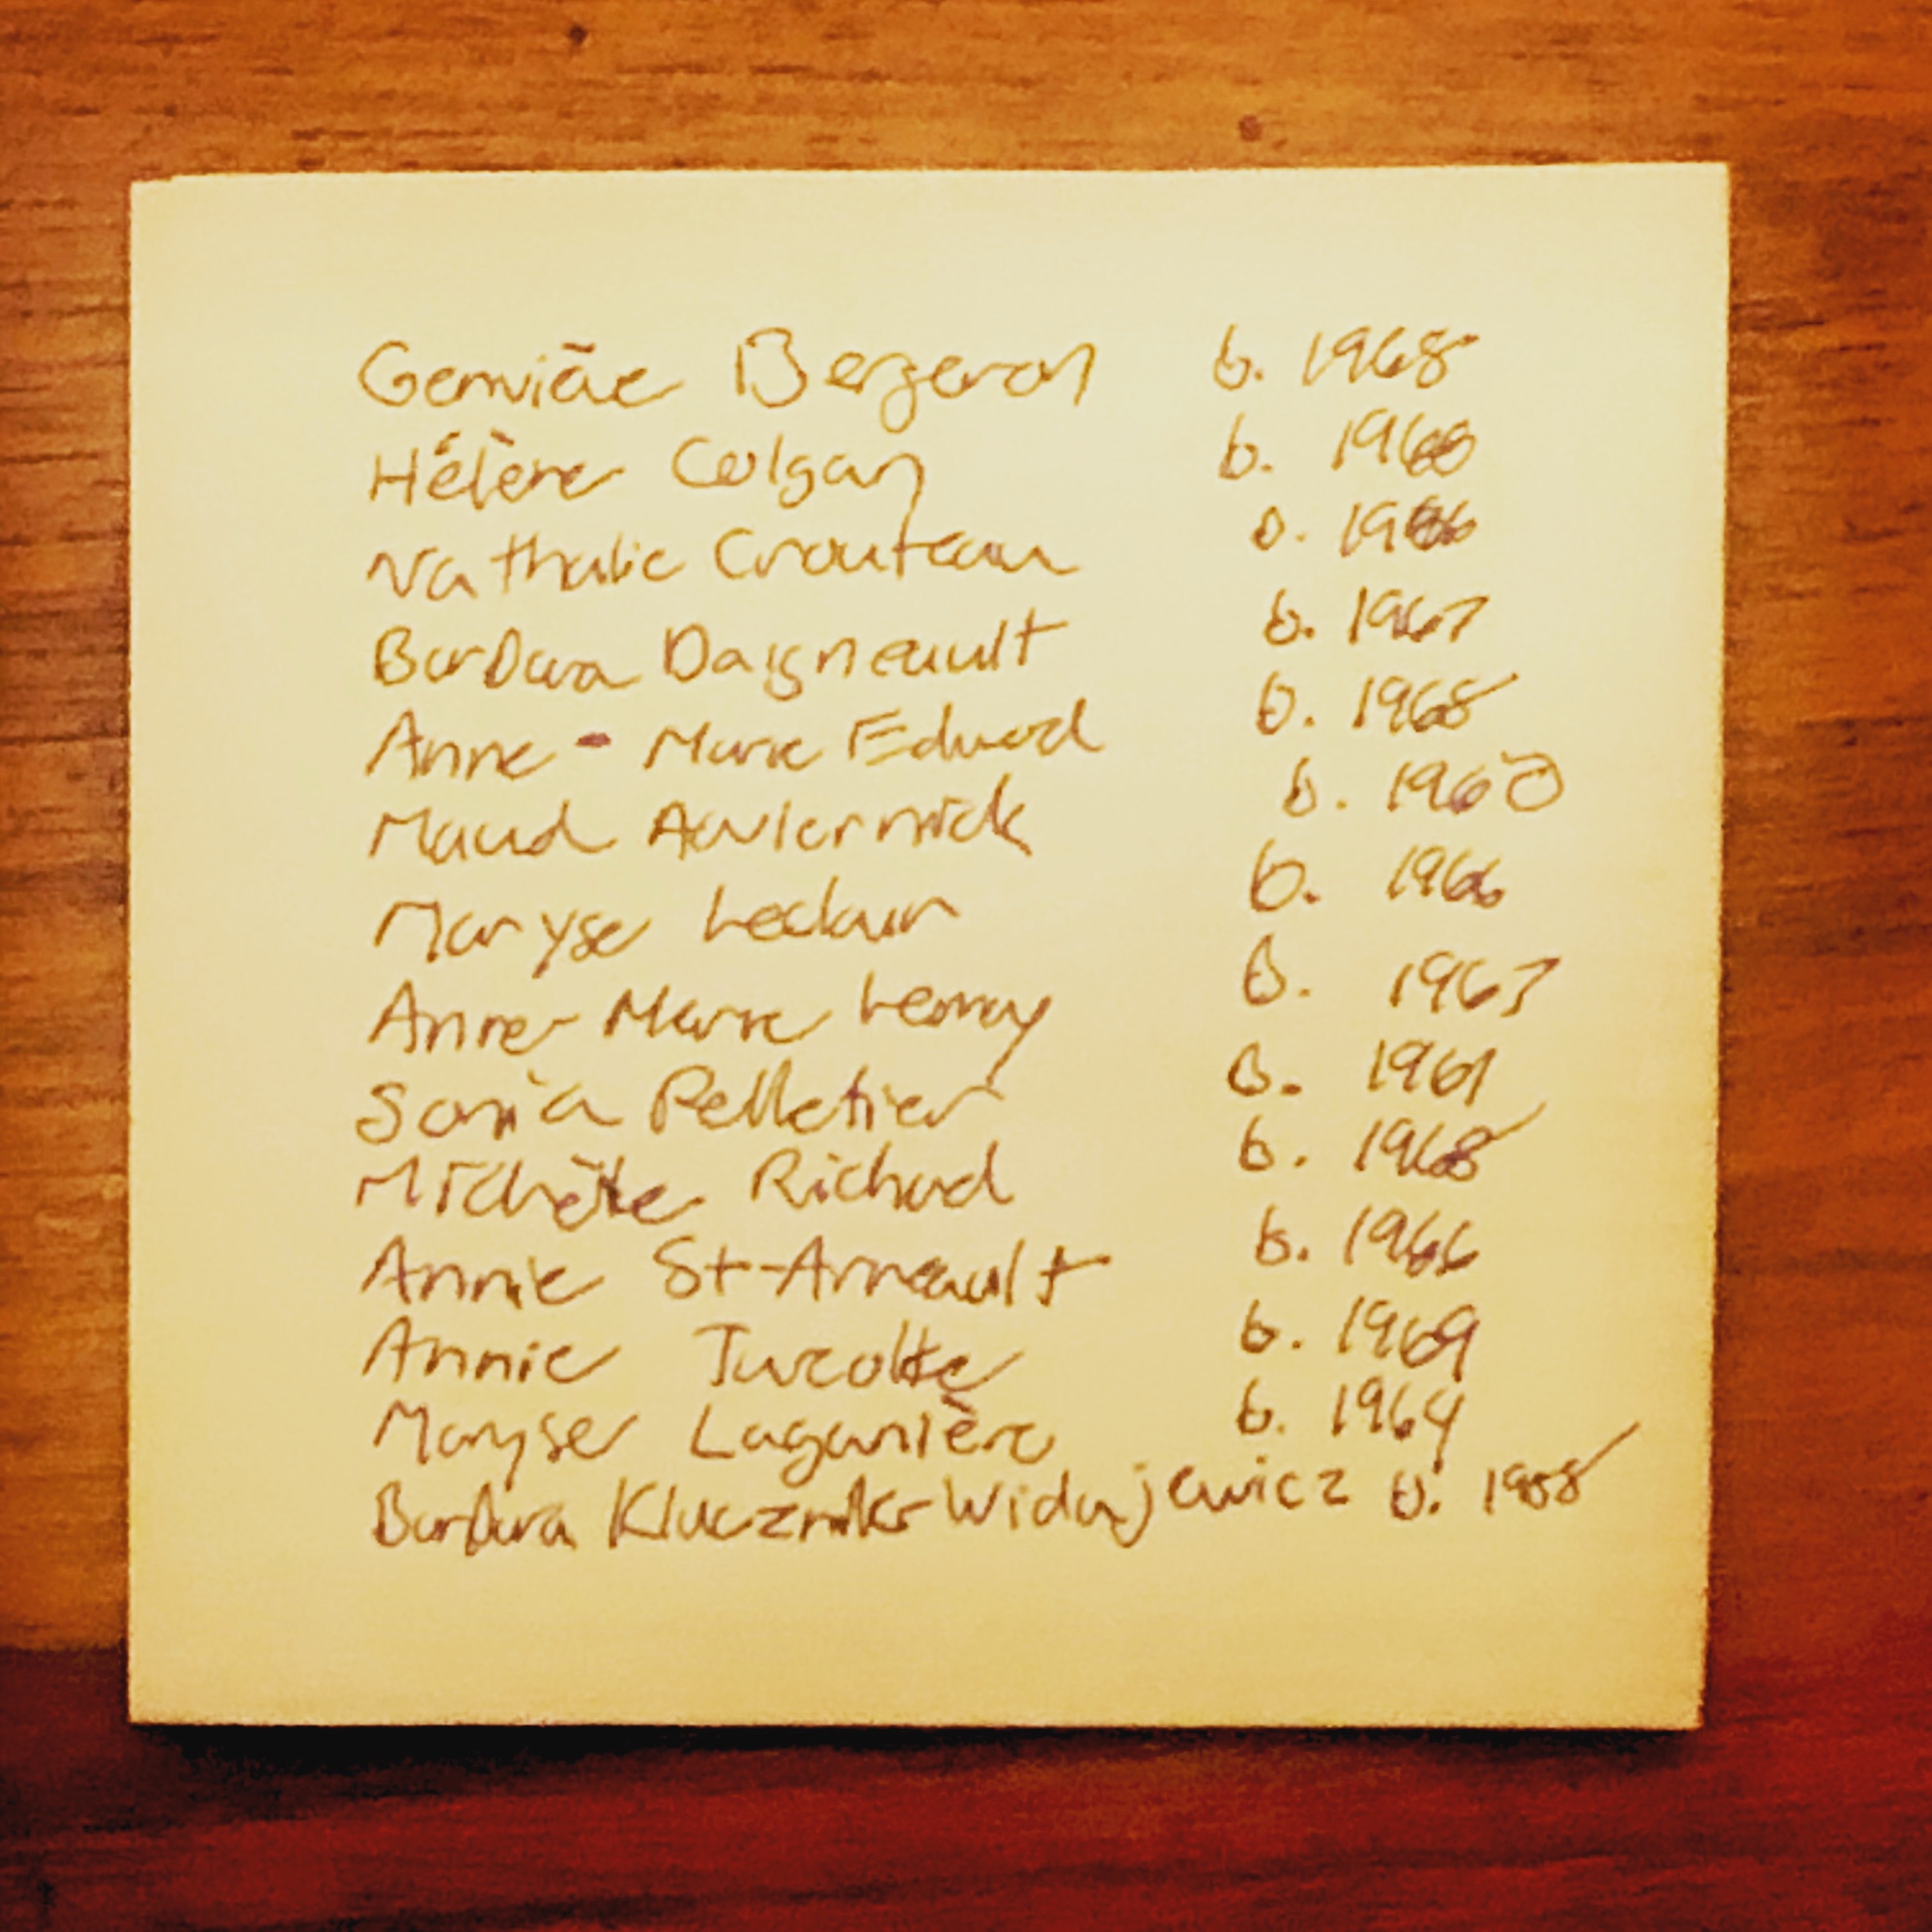 Genviève Bergeron b. 1968
Hélène Colgan b. 1966
Nathalie Crouteau b. 1966
Barbara Daigneault b. 1967
Anne-Marie Edward b. 1968
Maud b. 1960
Maryse Leclair b. 1966
Anne-Marie Lemay b. 1967
Sonia Pelletier b. 1961
Michèle Richard b. 1968
Annie St-Arneault b. 1966
Annie Turcotte b. 1969
Maryse Laganière b. 1964
Barbara Klucznik-Widajewicz b. 1958